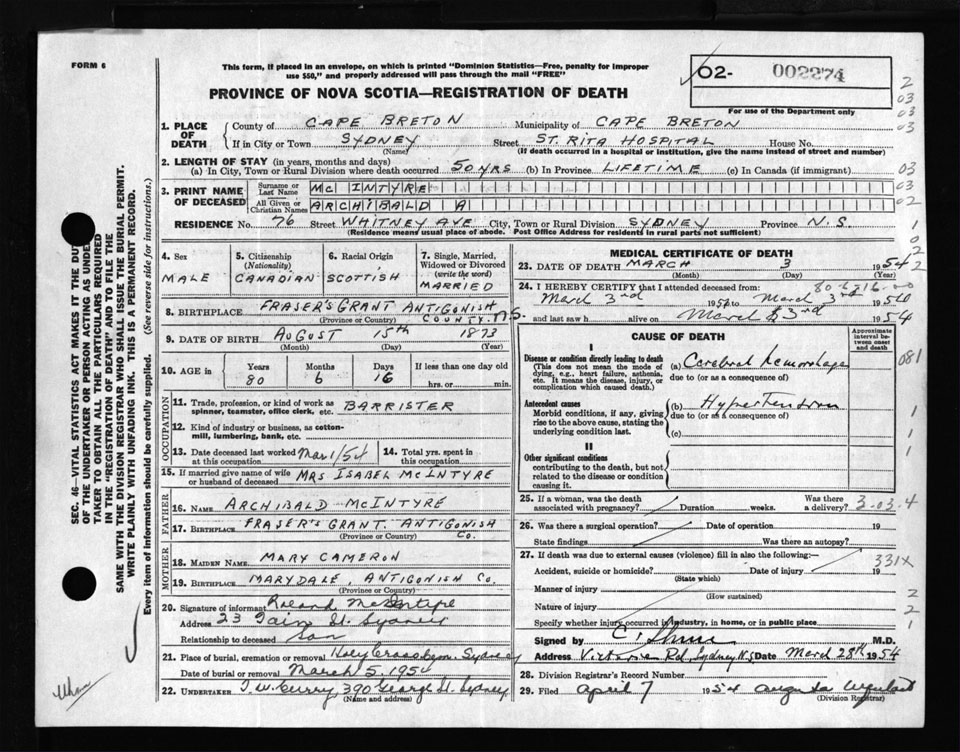 FORM 6
This form, if placed in an envelope, on which is printed "Dominion Statistics—Free, penalty for improper
use $50," and properly addressed will pass through the mail "FREE"
PROVINCE OF NOVA SCOTIA—REGISTRATION OF DEATH
02- 002274
For use of the Department only
2
03
03
03
03
02
1
0
2
2
SEC. 46—VITAL STATISTICS ACT MAKES IT THE DUTY
OF THE UNDERTAKER OR PERSON ACTING AS UNDER-
TAKER TO OBTAIN ALL THE PARTICULARS REQUIRED
IN THE "REGISTRATION OF DEATH" AND TO FILE THE
SAME WITH THE DIVISION REGISTRAR WHO SHALL ISSUE THE BURIAL PERMIT.
WRITE PLAINLY WITH UNFADING INK. THIS IS A PERMANENT RECORD.
Every item of information should be carefully supplied. (See reverse side for instructions.)
1. PLACE OF DEATH
County of CAPE BRETON Municipality of CAPE BRETON
If in City or Town SYDNEY Street ST. RITA HOSPITAL House No.
(Name) (If death occurred in a hospital or institution, give the name instead of street and number)
2. LENGTH OF STAY (in years, months and days)
(a) In City, Town or Rural Division where death occurred 50 YRS (b) In Province LIFETIME (c) In Canada (if immigrant)
3. PRINT NAME OF DECEASED
Surname or Last Name MC INTYRE
All Given or Christian Names ARCHIBALD A
RESIDENCE No. 76 Street WHITNEY AVE City, Town or Rural Division SYDNEY Province N.S
(Residence means usual place of abode. Post Office Address for residents in rural parts not sufficient)
4. Sex
MALE
5. Citizenship (Nationality)
CANADIAN
6. Racial Origin
SCOTTISH
7. Single, Married, Widowed or Divorced (write the word)
MARRIED
8. BIRTHPLACE FRASER'S GRANT ANTIGONISH
(Province or Country) COUNTY. N.S.
9. DATE OF BIRTH AUGUST 15th 1873
(Month) (Day) (Year)
10. AGE in Years Months Days If less than one day
80 6 16 hrs. or min.
OCCUPATION
11. Trade, profession, or kind of work as
spinner, teamster, office clerk, etc. BARRISTER
12. Kind of industry or business, as cotton-
mill, lumbering, bank, etc.
13. Date deceased last worked at this occupation Mar 1/54 14. Total yrs. spent in this occupation
15. If married give name of wife or husband of deceased MRS ISABEL McINTYRE
FATHER
16. Name ARCHIBALD McINTYRE
17. Birthplace FRASER'S GRANT. ANTIGONISH
(Province or Country) Co.
MOTHER
18. MAIDEN NAME MARY CAMERON
19. BIRTHPLACE MARYDALE, ANTIGONISH Co.
(Province or Country)
20. Signature of informant Roland McIntyre
Address 23 St. Sydney
Relationship to deceased Son
21. Place of burial, cremation or removal Holy Cross Cem. Sydney
Date of burial or removal March 5. 1954
22. UNDERTAKER T.W. Curry 390 George St. Sydney
(Name and address)
MEDICAL CERTIFICATE OF DEATH
23. DATE OF DEATH MARCH 3 1954
(Month) (Day) (Year)
24. I HEREBY CERTIFY that I attended deceased from: 80-6-16-00
March 3rd 195 to March 3rd 195
and last saw h alive on March 3rd 1954
CAUSE OF DEATH
Approximate interval between onset and death
I
Disease or condition directly leading to death
(This does not mean the mode of dying, e.g., heart failure, asthenia, etc. It means the disease, injury, or complication which caused death.)
(a) Cerebral hemorrhage
due to (or as a consequence of)
081
Antecedent causes
Morbid conditions, if any, giving rise to the above cause, stating the underlying condition last.
(b) Hypertension
due to (or as a consequence of)
(c)
1
1
1
II
Other significant conditions
contributing to the death, but not related to the disease or condition causing it.
25. If a woman, was the death associated with pregnancy? Duration weeks. Was there a delivery? 3-03-4
26. Was there a surgical operation? Date of operation 19
State findings Was there an autopsy?
27. If death was due to external causes (violence) fill in also the following:—
Accident, suicide or homicide? Date of injury 19
(State which)
331X
Manner of injury
(How sustained)
Nature of injury
2
2
Specify whether injury occurred in industry, in home, or in public place
1
Signed by M.D.
Address Victoria Rd, Sydney N.S Date March 28th 1954
28. Division Registrar's Record Number
29. Filed April 7 1954
(Division Registrar)